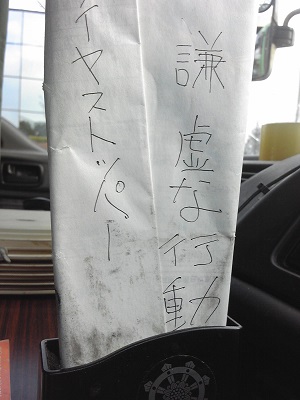 謙虚な行動
イヤストッパー